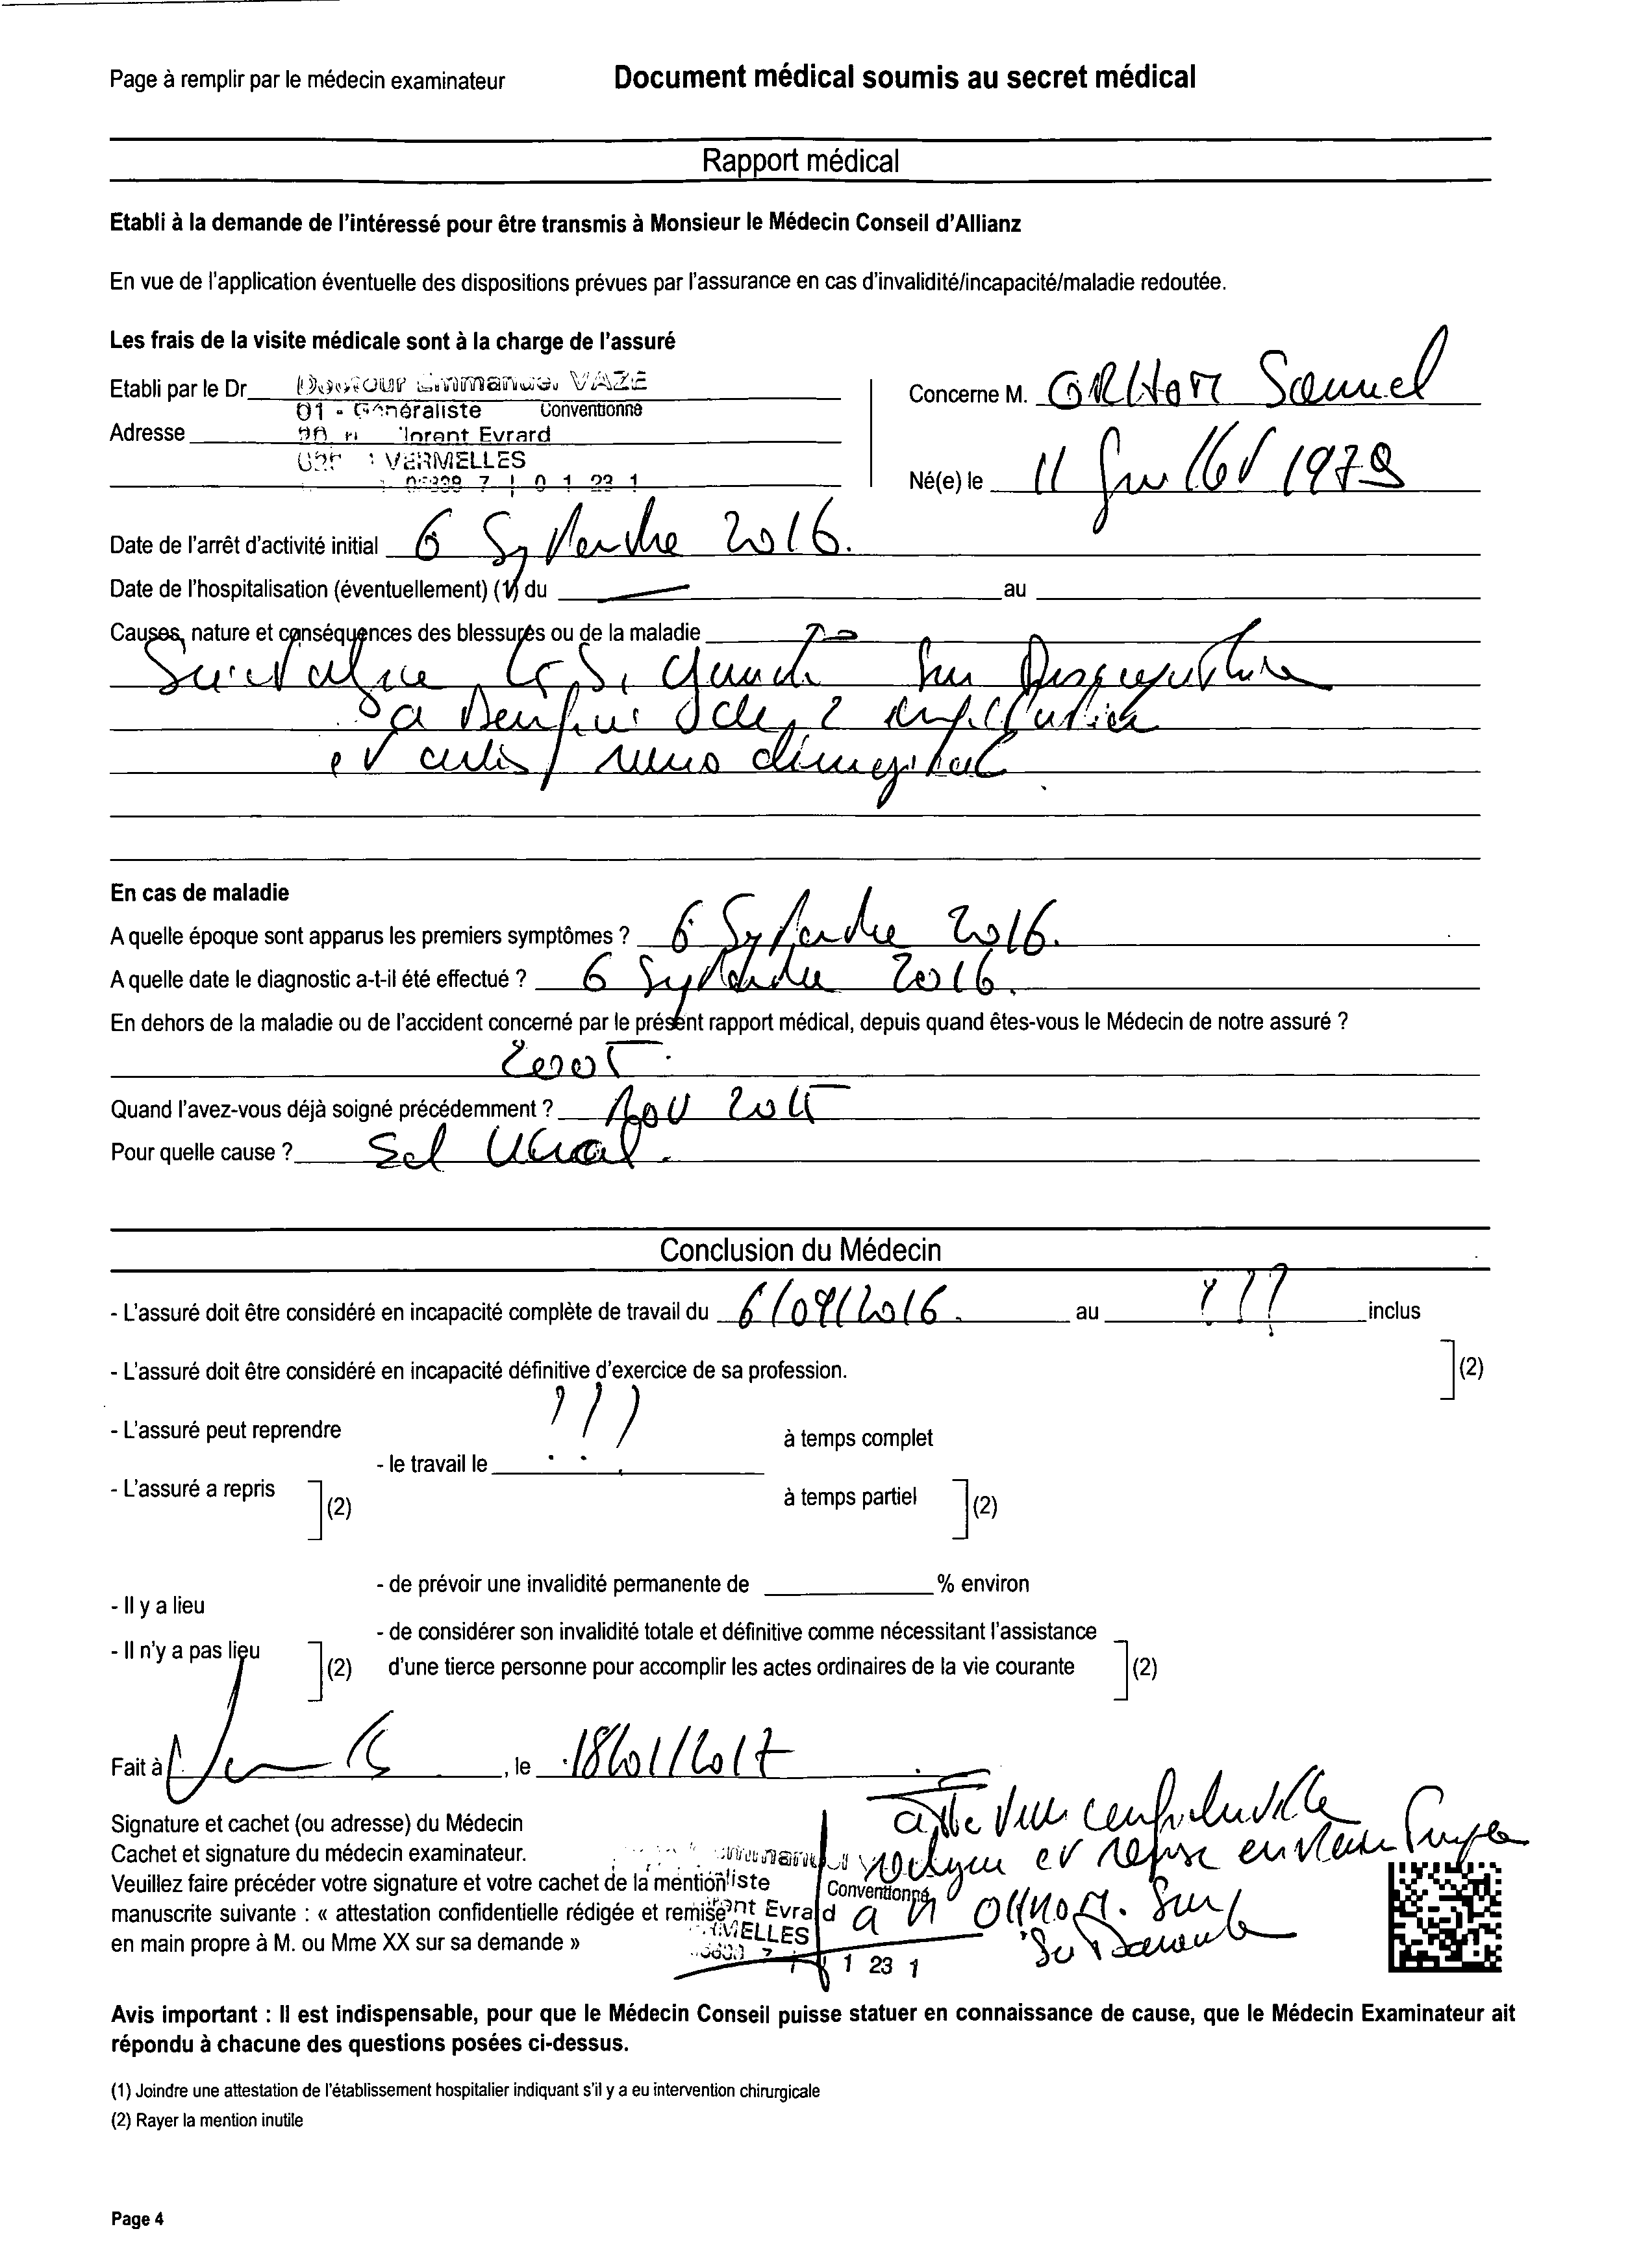 Page à remplir par le médecin examinateur
Document médical soumis au secret médical
Rapport médical
Etabli à la demande de l'intéressé pour être transmis à Monsieur le Médecin Conseil d'Allianz
En vue de l'application éventuelle des dispositions prévues par l'assurance en cas d'invalidité/incapacité/maladie redoutée.
Les frais de la visite médicale sont à la charge de l'assuré
Etabli par le Dr VAZE
01 - Généraliste Conventionné
Adresse Evrard
VERMELLES
Concerne M. Samuel
Né(e) le 11 Juillet 1979
Date de l'arrêt d'activité initial 6 Septembre 2016.
Date de l'hospitalisation (éventuellement) (1) du — au
Causes, nature et conséquences des blessures ou de la maladie
Sciatique L5S1 gauche sur
2
et
En cas de maladie
A quelle époque sont apparus les premiers symptômes ? 6 Septembre 2016.
A quelle date le diagnostic a-t-il été effectué ? 6 Septembre 2016.
En dehors de la maladie ou de l'accident concerné par le présent rapport médical, depuis quand êtes-vous le Médecin de notre assuré ?
2005.
Quand l'avez-vous déjà soigné précédemment ? 2015
Pour quelle cause ?
Conclusion du Médecin
- L'assuré doit être considéré en incapacité complète de travail du 6/09/2016. au ??? inclus
- L'assuré doit être considéré en incapacité définitive d'exercice de sa profession. (2)
- L'assuré peut reprendre
- le travail le ???
à temps complet
- L'assuré a repris (2)
à temps partiel (2)
- de prévoir une invalidité permanente de % environ
- Il y a lieu
- de considérer son invalidité totale et définitive comme nécessitant l'assistance
- Il n'y a pas lieu (2)
d'une tierce personne pour accomplir les actes ordinaires de la vie courante (2)
Fait à , le 18/01/2017
Signature et cachet (ou adresse) du Médecin
Cachet et signature du médecin examinateur.
Veuillez faire précéder votre signature et votre cachet de la mention
manuscrite suivante : « attestation confidentielle rédigée et remise
en main propre à M. ou Mme XX sur sa demande »
Conventionné
Evrard
1 23 1
confidentielle
rédigée et remise en main propre
à M sur
sa demande
Avis important : Il est indispensable, pour que le Médecin Conseil puisse statuer en connaissance de cause, que le Médecin Examinateur ait
répondu à chacune des questions posées ci-dessus.
(1) Joindre une attestation de l'établissement hospitalier indiquant s'il y a eu intervention chirurgicale
(2) Rayer la mention inutile
Page 4